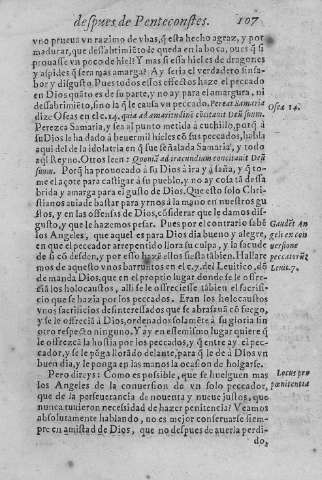 despues de Pentecostes. 107
vno prueua vn razimo de vbas, q̃ esta hecho agraz, y por
madurar, que dessabrimiẽto le queda en la boca, pues q̃ si
prouasse vn poco de hiel? Y mas si esta hiel es de dragones
y aspides q̃ sera mas amarga? Ay seria el verdadero sinsa-
bor y disgusto. Pues todos essos effectos haze el peccado
en Dios quãto es de su parte, y no ay para el amargura, ni
dessabrimiẽto, sino la q̃ le causa vn peccado. Pereat Samaria
dize Oseas en el c. 14. quia ad amaritudinẽ cõcitauit Deũ suum.
Osea 14.
Perezca Samaria, y sea al punto metida à cuchillo, porq̃ à
su Dios le ha dado à beuer mil hieles cõ sus peccados, habla
aqui del de la idolatria en q̃ fue señalada Samaria, y todo
aq̃l Reyno. Otros leen: Quoniã ad iracundiam concitauit Deũ
suum. Porq̃ ha prouocado à su Dios à ira y saña, y q̃ to-
me el açote para castigar à su pueblo, y no ay cosa tã dessa
brida y amarga para el gusto de Dios. Que esto solo Chri-
stianos auia de bastar para yrnos à la mano en nuestros gu
stos, y en las offensas de Dios, cõsiderar que le damos dis-
gusto, y que le hazemos pesar. Pues por el contrario sabẽ
los Angeles, que aquel es para Dios dia bueno y alegre,
en que el peccador arrepentido llora su culpa, y la sacude
de si cõ desden, y por esso hazẽ ellos fiesta tãbien. Hallare
mos de aquesto vnos barruntos en el c. 7. del Leuitico, dõ
de manda Dios, que en el proprio lugar donde se le offre-
cia los holocaustos, alli se le offreciesse tãbien el sacrifi-
cio que se hazia por los peccados. Eran los holocaustos
vnos sacrificios desinteressados que se abrasauã cõ fuego,
y se le offreciã à Dios, ordenados solamẽte à su gloria sin
otro respecto ninguno. Y ay en estemismo lugar quiere q̃
le offrezcã la hostia por los peccados, y q̃ entre ay el pec-
cador, y se le põga llorãdo delante, para q̃ le dè à Dios vn
buen dia, y le ponga en las manos la ocasion de holgarse.
Gaudẽt An
geli in con
uersione
peccatorũ
Leui. 7.
Pero direys: Como es possible, que se huelguen mas
los Angeles de la conuersion de vn solo peccador,
que de la perseuerancia de nouenta y nueue justos, que
nunca tuuieron necesidad de hazer penitencia? Veamos
absolutamente hablando, no es mejor conseruarse siem-
pre en amistad de Dios, que no despues de auerla perdi-
Locus pro
pœnitentia
do,